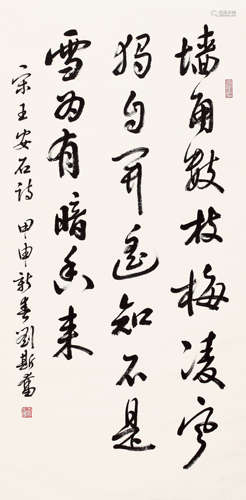 墙角数枝梅凌寒
独自开遥知不是
雪为有暗香来
宋王安石诗 甲申新春刘斯奋